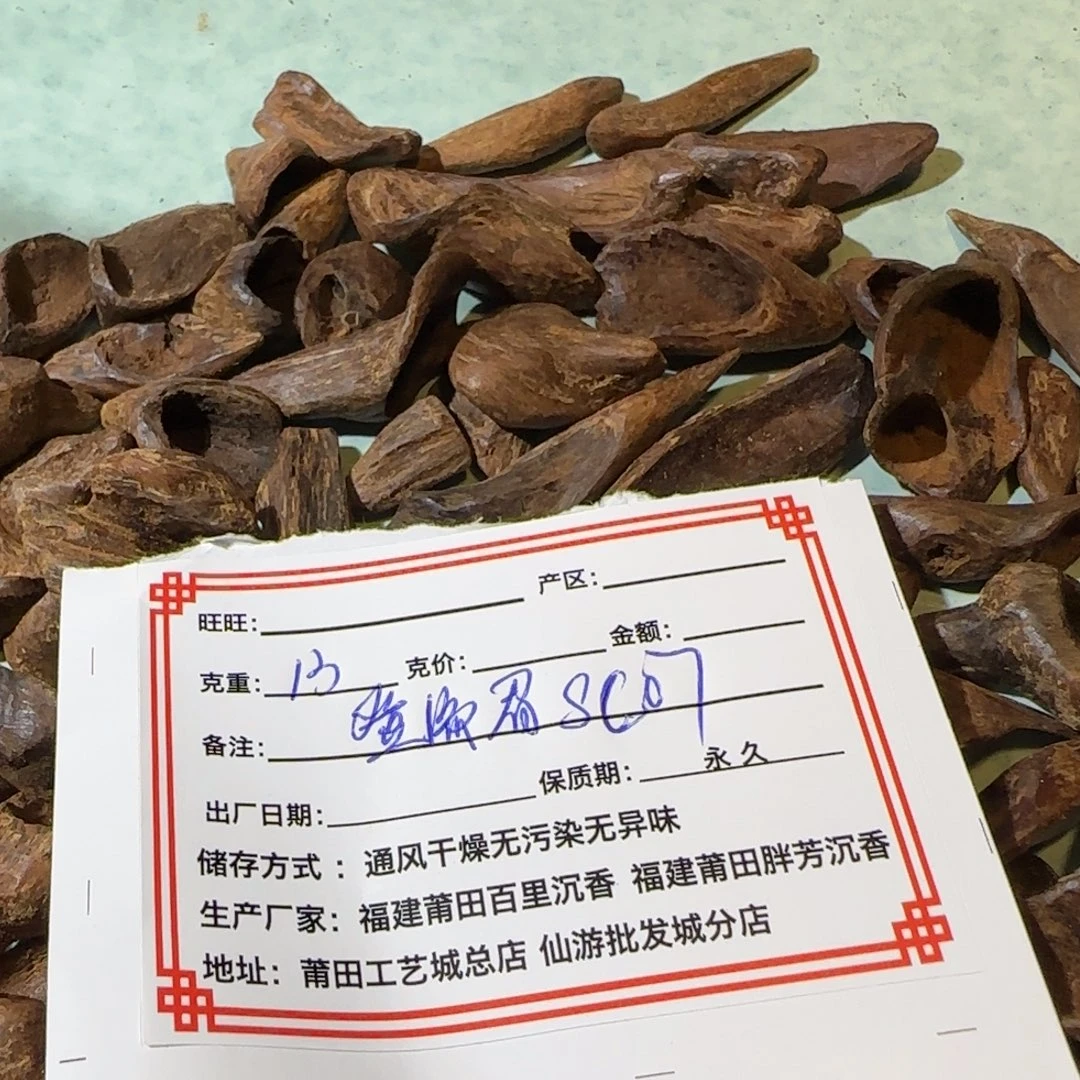 旺旺： 产区：
克重：13 克价： 金额：
备注： SC07
出厂日期： 保质期：永久
储存方式：通风干燥无污染无异味
生产厂家：福建莆田百里沉香 福建莆田胖芳沉香
地址：莆田工艺城总店 仙游批发城分店